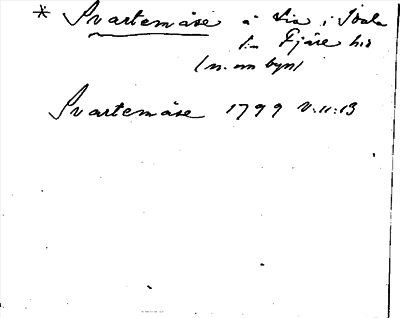 * Svartemåse å Lia i Idala
sn Fjäre hd
(n. om byn)
Svartemåse 1799 V:11:13